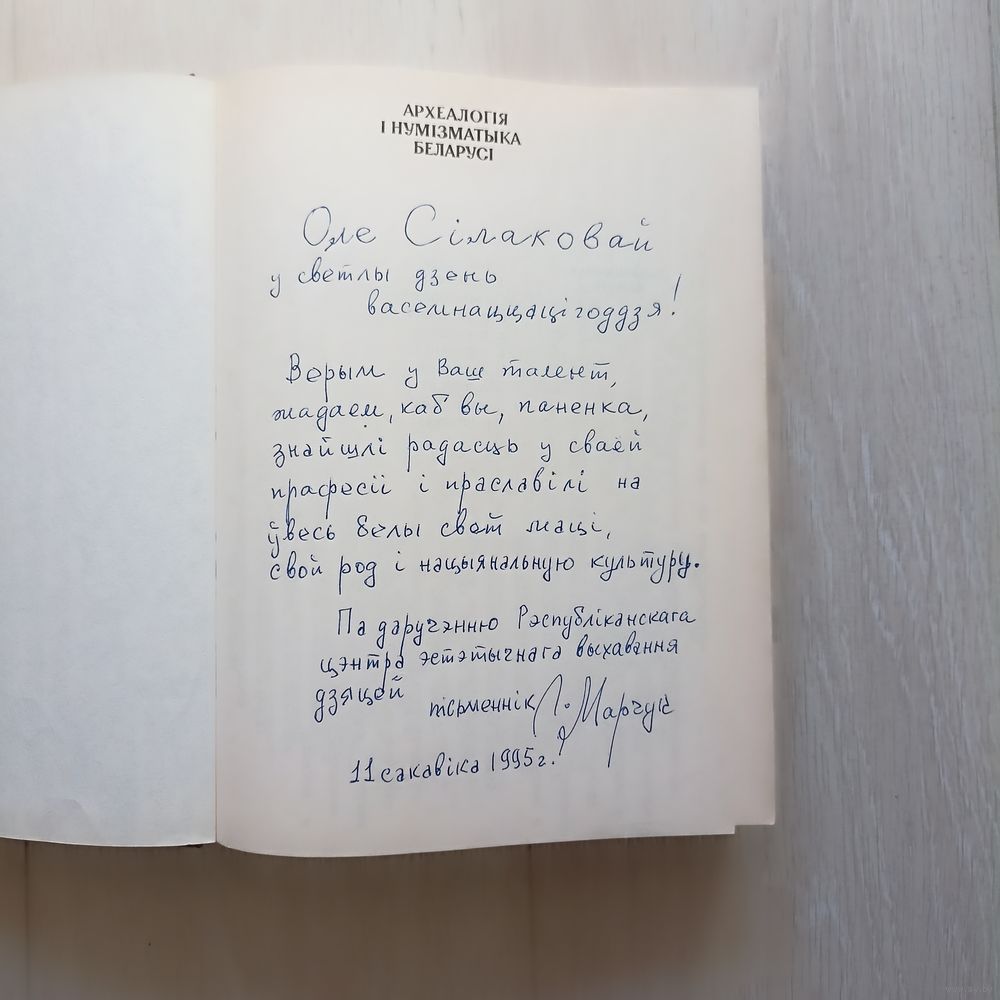 АРХЕАЛОГІЯ
І НУМІЗМАТЫКА
БЕЛАРУСІ
Оле Сілаковай
у светлы дзень
васемнаццацігоддзя!
Верым у Ваш талент,
жадаем, каб вы, паненка,
знайшлі радасць у сваёй
прафесіі і праславілі на
ўвесь белы свет маці,
свой род і нацыянальную культуру.
Па даручэнню Рэспубліканскага
цэнтра эстэтычнага выхавання
дзяцей пісьменнік Г. Марчук
11 сакавіка 1995 г.